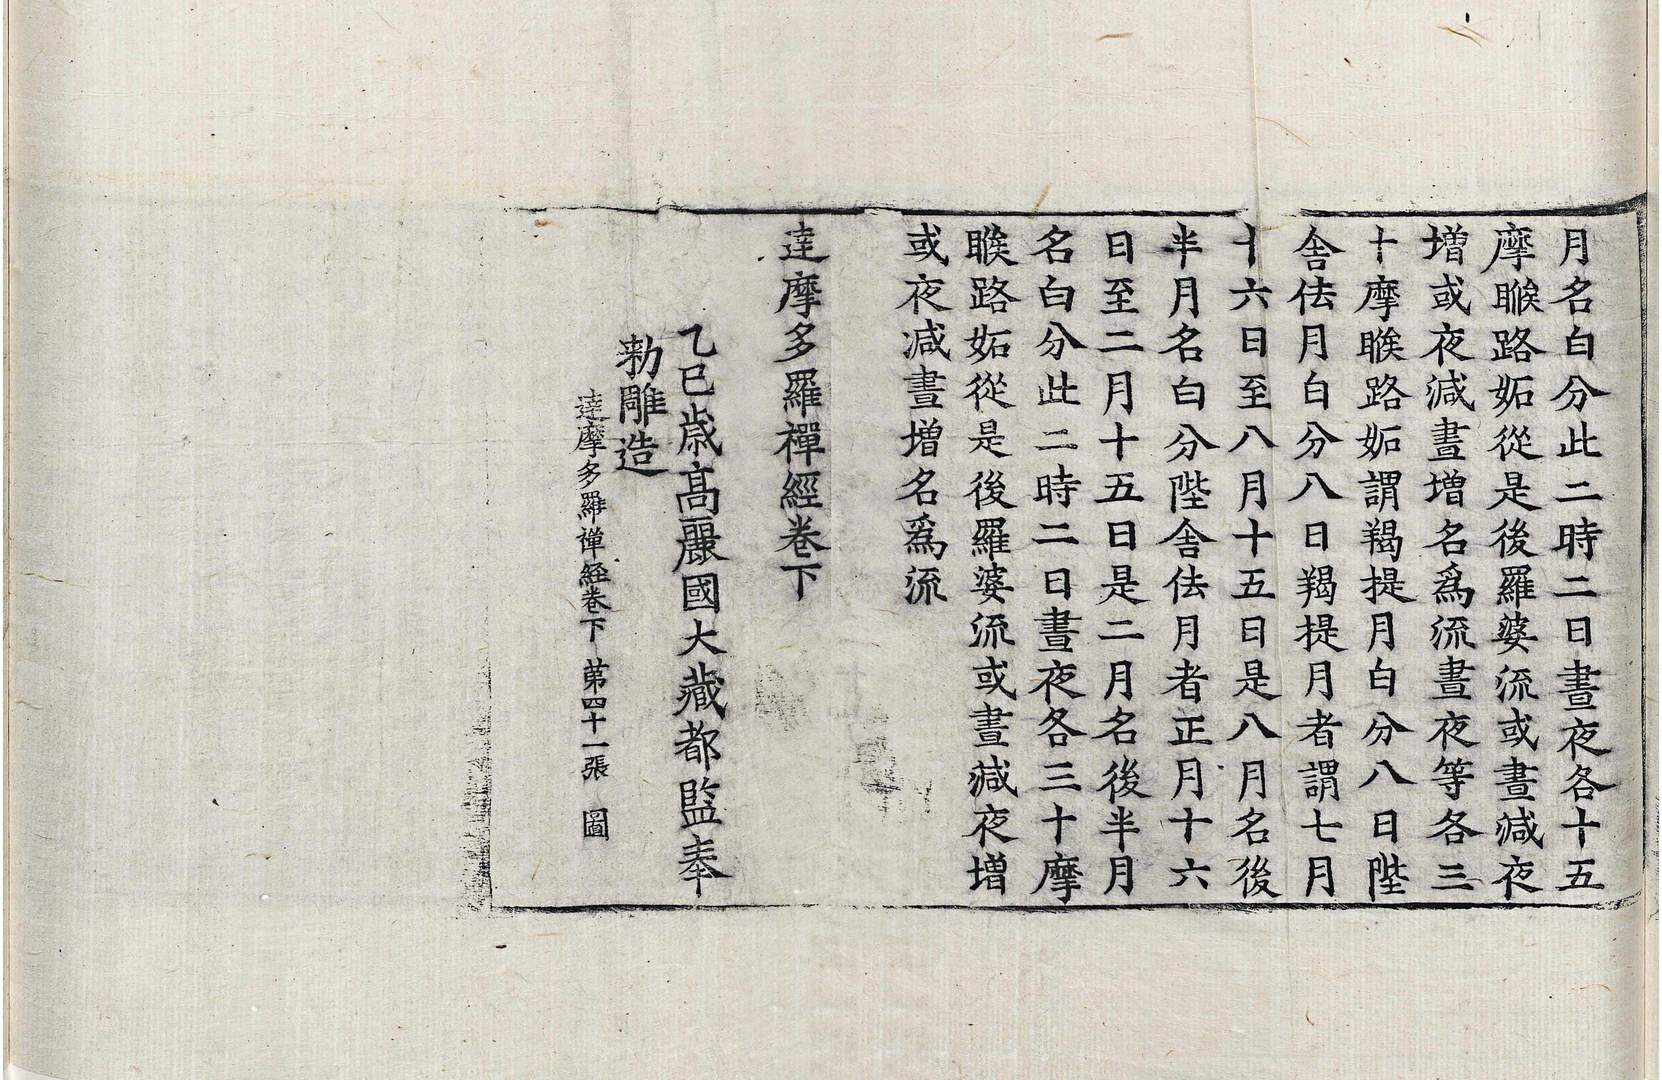 月名白分此二時二日晝夜各十五
摩睺路妬從是後羅婆流或晝減夜
增或夜減晝增名爲流晝夜等各三
十摩睺路妬謂羯提月白分八日陛
舎佉月白分八日羯提月者謂七月
十六日至八月十五日是八月名後
半月名白分陛舎佉月者正月十六
日至二月十五日是二月名後半月
名白分此二時二日晝夜各三十摩
睺路妬從是後羅婆流或晝減夜增
或夜減晝增名爲流
達摩多羅禪經卷下
乙巳歳高麗國大藏都監奉
勅雕造
達摩多羅禅経巻下 第四十一張 圖